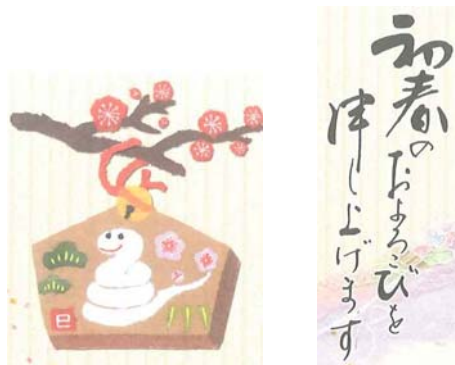 初春のおよろこびを
申し上げます
巳